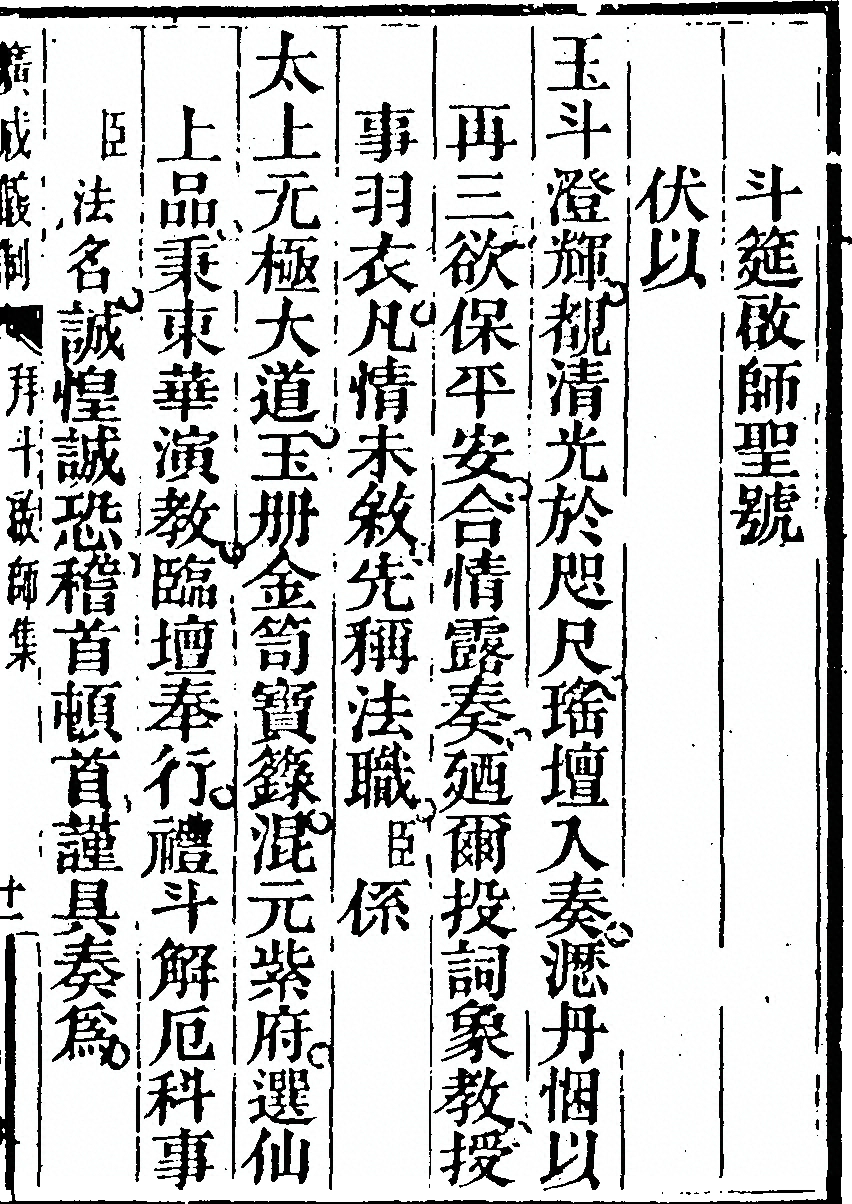 斗筵啟師聖號
伏以
玉斗澄輝覩清光於咫尺瑤壇入奏瀝丹悃以
再三欲保平安合情露奏廼爾投詞象教授
事羽衣凡情未敘先稱法職臣係
太上无極大道玉册金笥寶籙混元紫府選仙
上品秉東華演教臨壇奉行禮斗解厄科事
臣法名誠惶誠恐稽首頓首謹具奏為
廣成儀制 拜斗啟師集 十一